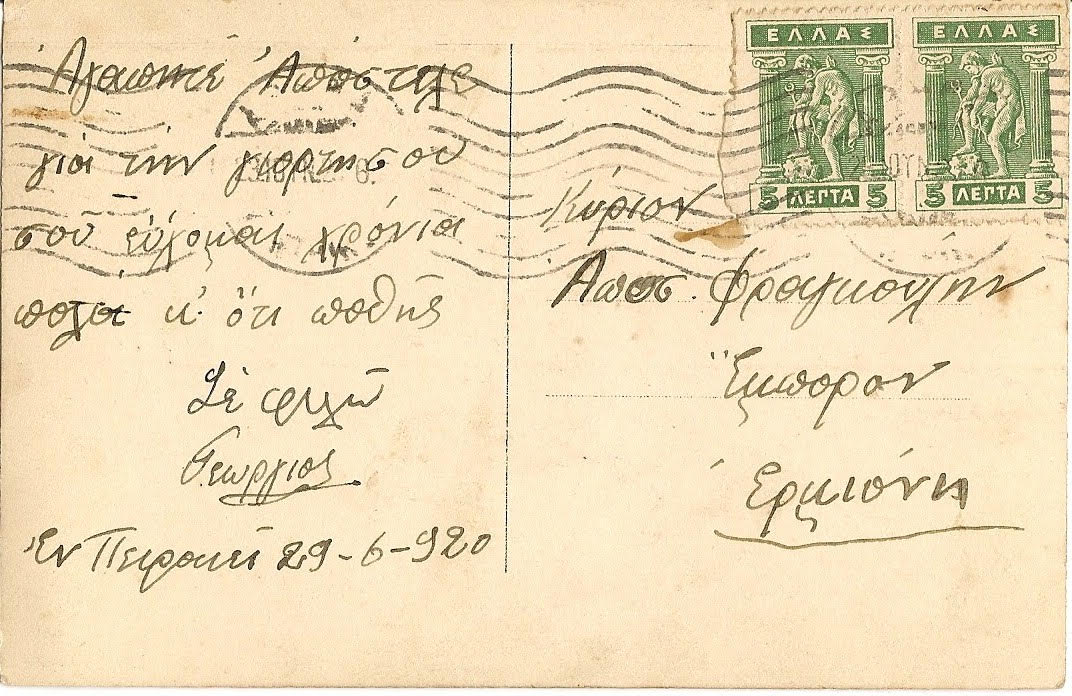 Ἀγαπητέ Ἀπόστολε
γιὰ τὴν γιορτή σου
σοῦ εὔχομαι χρόνια
πολλά κ' ὅτι ποθῆς
Σὲ φιλῶ
Γεώργιος
Ἐν Πειραιεῖ 29-6-920
ΕΛΛΑΣ
5 ΛΕΠΤΑ 5
ΕΛΛΑΣ
5 ΛΕΠΤΑ 5
Κύριον
Αποστ. Φραγκούλην
Ἔμπορον
Ἑρμιόνη